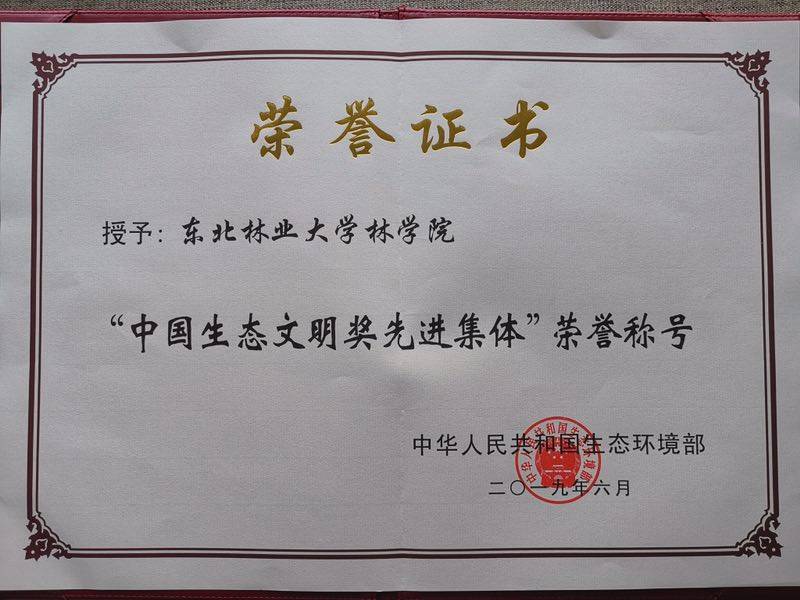 荣誉证书
授予：东北林业大学林学院
“中国生态文明奖先进集体”荣誉称号
中华人民共和国生态环境部
二〇一九年六月
中华人民共和国生态环境部